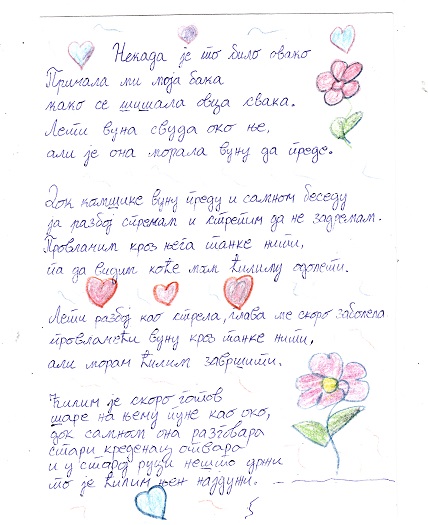 Некада је то било овако
Причала ми моја бака
како се шишала овца свака.
Лети вуна свуда око ње,
али је она морала вуну да преде.
Док комшике вуну преду и самном беседу
ја разбој спремам и стрепим да не задремам.
Провлачим кроз њега танке нити,
па да видим коће мом ћилиму одолети.
Лети разбој као стрела, глава ме скоро заболела
провлачећи вуну кроз танке нити,
али морам ћилим завршити.
Ћилим је скоро готов
шаре на њему пуне као око,
док самном она разговара
стари креденац отвара
и у старој руци нешто држи
то је ћилим њен најдужи.